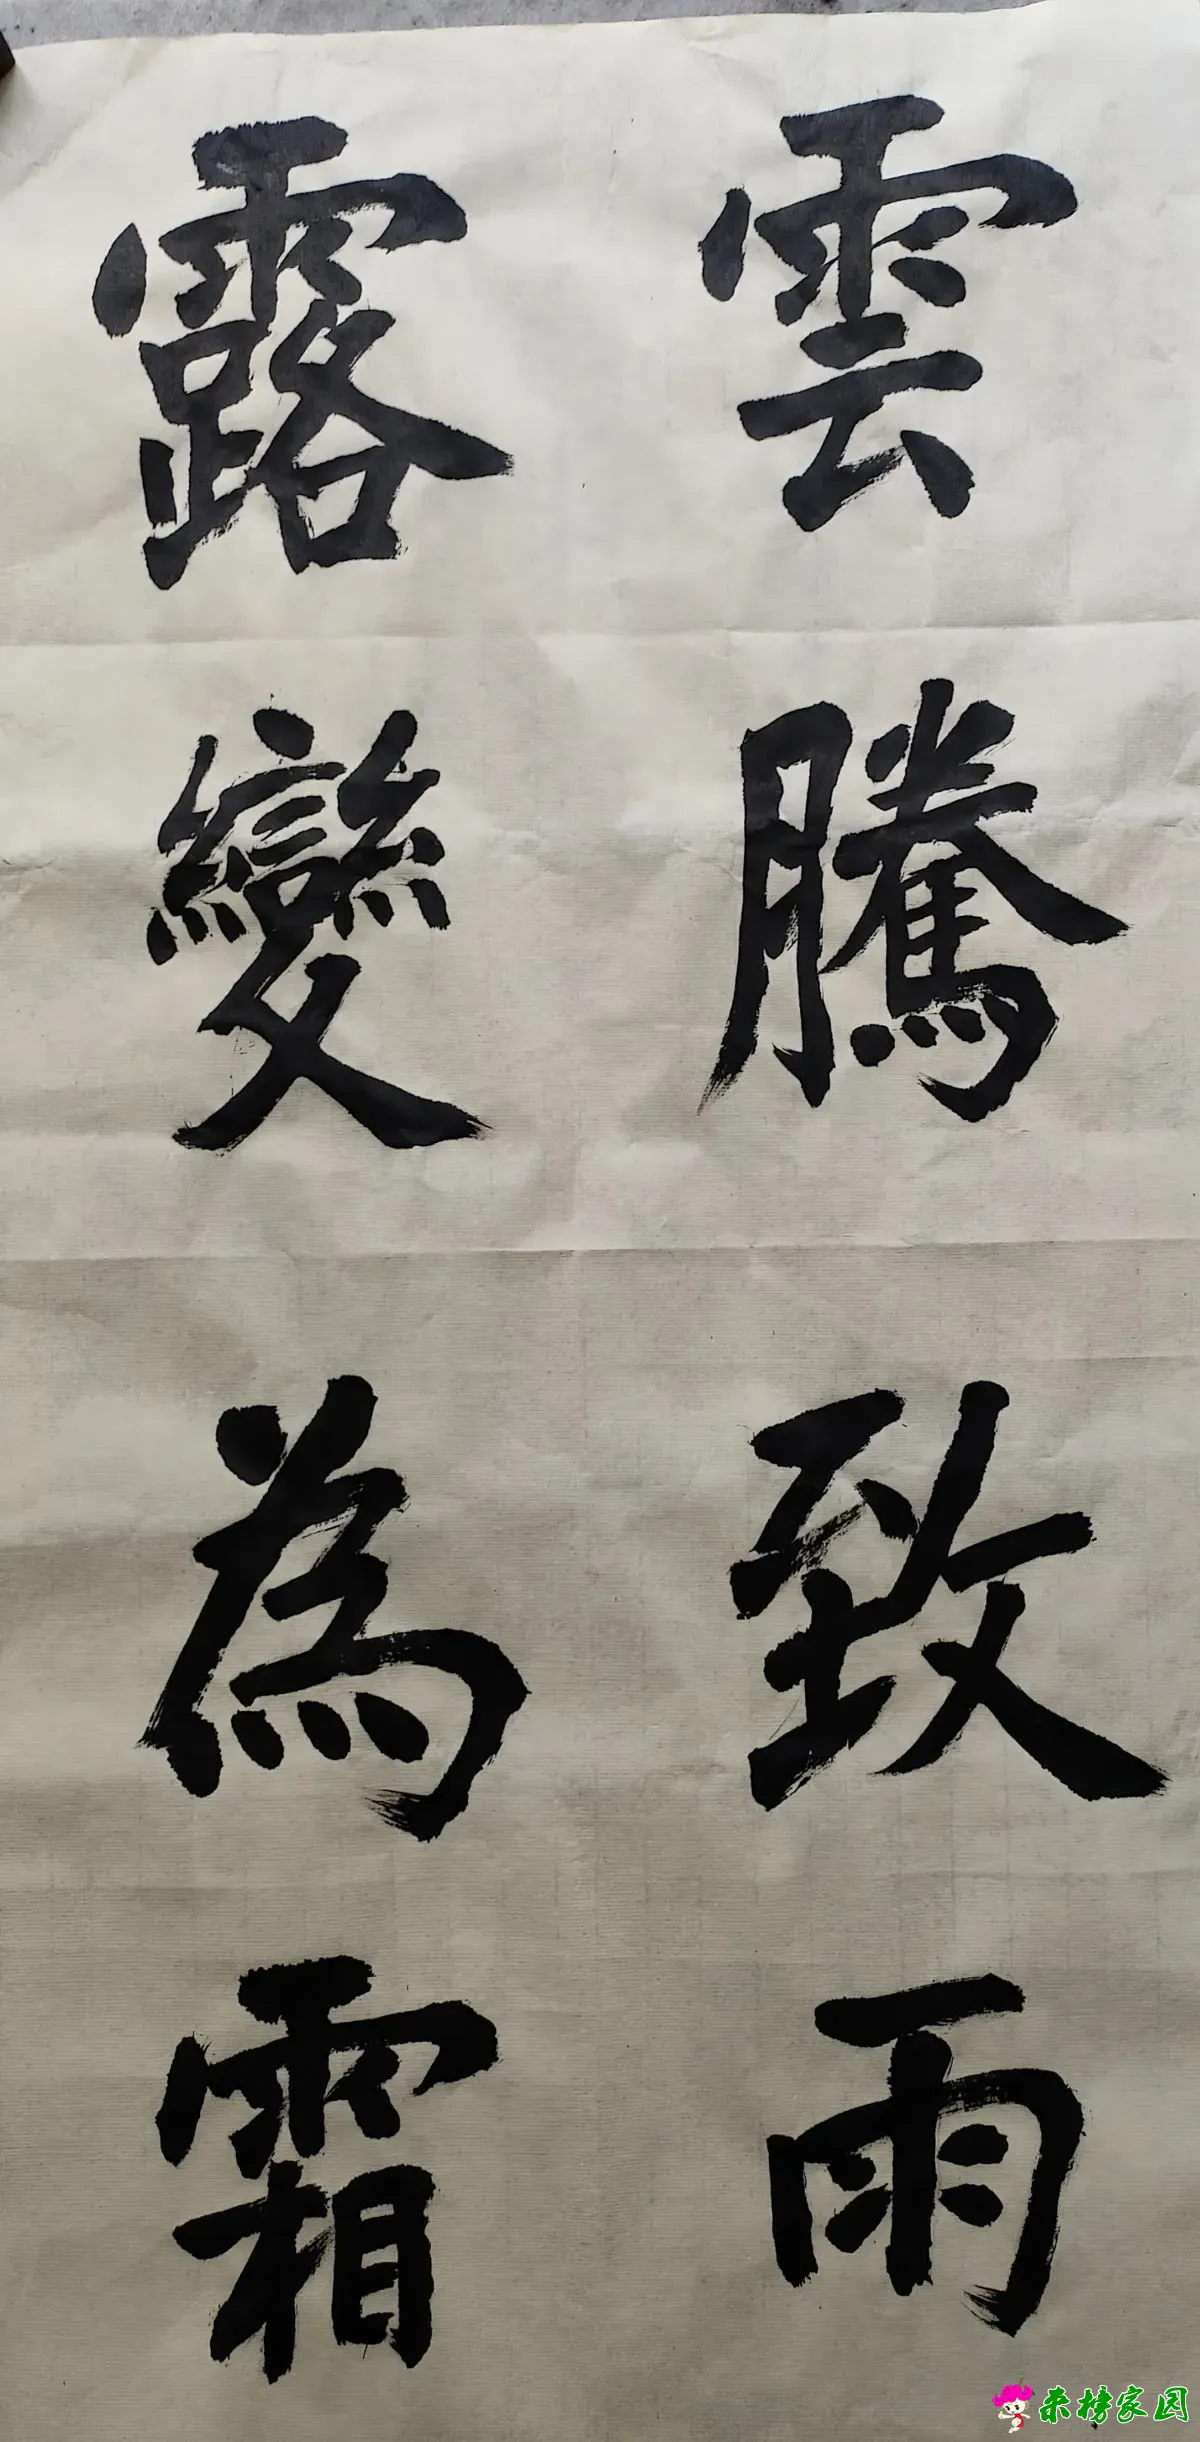 雲騰致雨
露變為霜
来榜家园